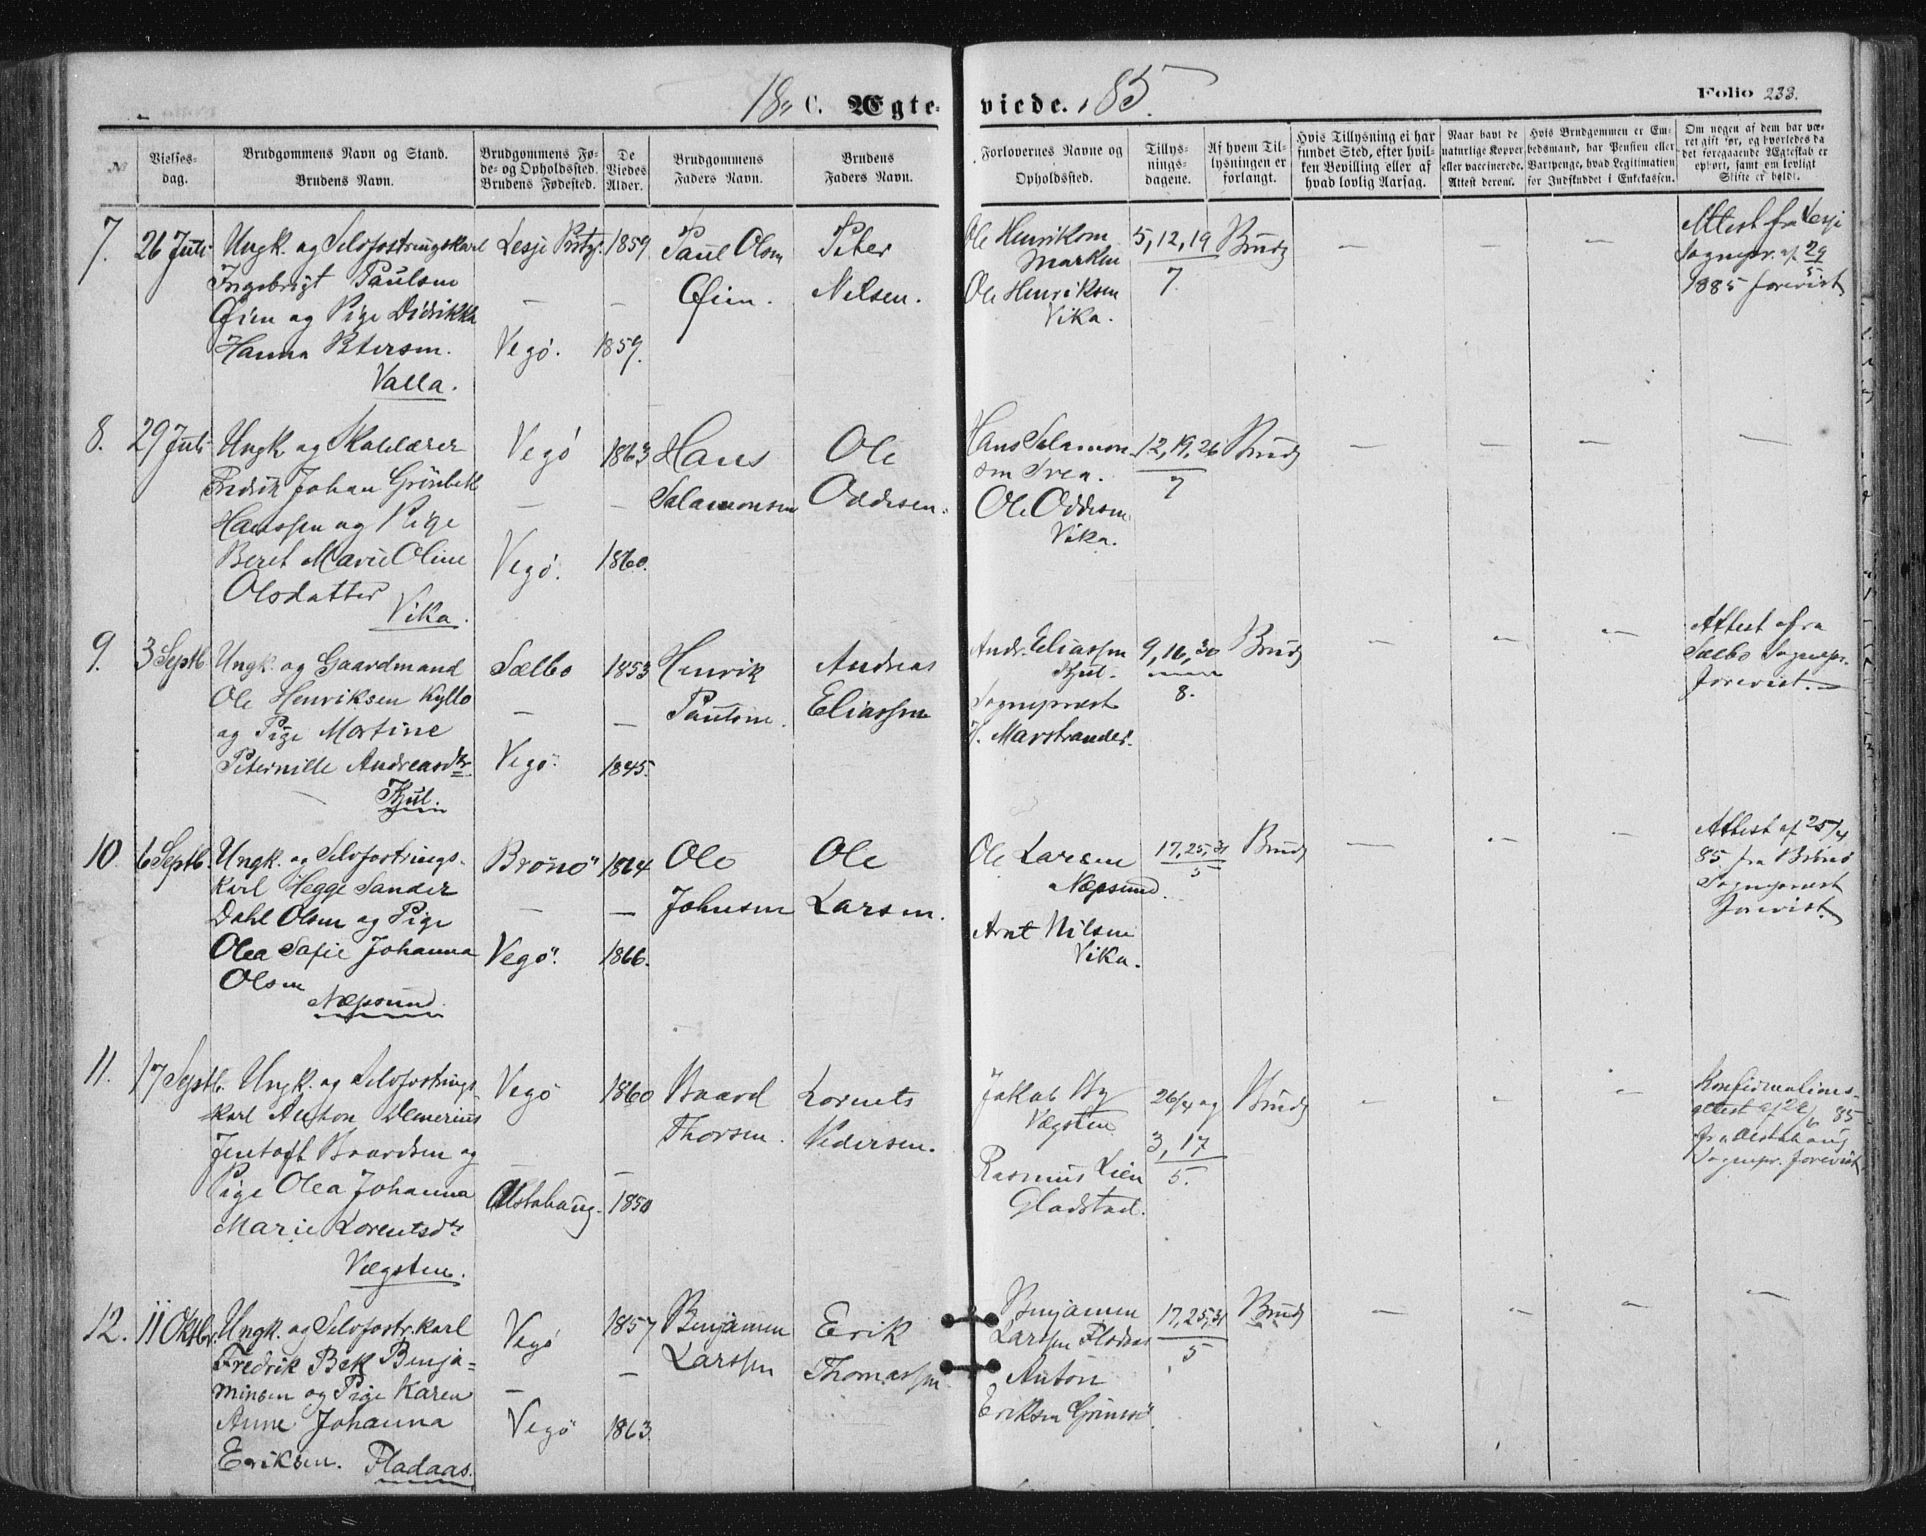 18 C. Ægteviede. 85.
Folio 233.
№
Vielses-
dag.
Brudgommens Navn og Stand.
Brudens Navn.
Brudgommens Fø-
de- og Opholdssted.
Brudens Fødested.
De
Viedes
Alder.
Brudgommens
Faders Navn.
Brudens
Faders Navn.
Forlovernes Navne og
Opholdssted.
Tillys-
nings-
dagene.
Af hvem Til-
lysningen er
forlangt.
Hvis Tillysning ei har
fundet Sted, efter hvil-
ken Bevilling eller af
hvad lovlig Aarsag.
Naar havt de
naturlige Kopper
eller vaccinerede.
Attest derom.
Hvis Brudgommen er Em-
bedsmand, har Pension eller
Vartpenge, hvad Legitimation
for Indskuddet i Enkekassen.
Om nogen af dem har væ-
ret gift før, og hvorledes da
det foregaaende Ægteskab er
ophørt, samt om lovligt
Skifte er holdt.
7. 26 Juli
Ungk. og Selvfostringskarl
Ingebrigt Paulsen
Øien og Pige Didrikka
Hanna Petersen.
Valla.
Lesje
—
Vegø.
1859
—
1859.
Paul Olsen
Øien.
Peter
Nilsen.
Ole Henriksen
Marken
Ole Henriksen
Vika.
5, 12, 19
7
Brudg
— — —
Attest fra Lesje
Sognepr. af 29
5
1885 forevist
8. 29 Juli
Ungk og Skolelærer
Fredrik Johan Grönbek
Hanssen og Pige
Beret Marie Oline
Olsdatter
Vika.
Vegø
—
Vegø.
1863
—
1860.
Hans
Salamonsen
Ole
Oddesen.
Hans Salamon-
sen
Ole Oddesen
Vika.
12, 19, 26
7
Brudg
— — — —
9. 3 Septb.
Ungk. og Gaardmand
Ole Henriksen Kyllo
og Pige Martine
Peternille Andreasdtr.
Kjul.
Sælbo
—
Vegø.
1853
—
1845.
Henrik
Paulsen.
Andreas
Eliassen
Andr. Eliassen
Kjul.
Sognepræst
Marstrander.
9, 16, 30
8.
Brudg
— — —
Attest fra
Sælbo Sognepr.
forevist.
10. 6 Septb.
Ungk. og Selvfostrings-
karl Hegge Sander
Dahl Olsen og Pige
Olea Sofie Johanna
Olsen
Næpsund.
Brönö
—
Vegö.
1864
—
1866.
Ole
Johnsen
Ole
Larsen.
Ole Larsen
Næpsund.
Arnt Nilsen
Vika.
17, 25, 31
5
Brudg
— — —
Attest af 25/4
85 fra Brönö
Sognepræst
forevist.
11. 17 Septb.
Ungk. og Selvfostrings-
karl Anton Demerius
Jentoft Baardsen og
Pige Olea Johanna
Marie Lorentsdtr
Vægsten.
Vegö
—
Alstahaug.
1860
—
1850
Baard
Thorsen.
Lorents
Pedersen.
Jakob By
Vægsten
Rasmus Lien
Gladstad.
26/4 og
3, 17
5.
Brudg
— — —
Konfirmations-
attest af
85
fra Alstahaug
Sognepr. forevist
12. 11 Oktbr.
Ungk. og Selvfostr.karl
Fredrik Bek Benja-
minsen og Pige Karen
Anne Johanna
Eriksen. Fladaas.
Vegö
—
Vegö
1857
—
1863
Benjamen
Larssen
Erik
Thomassen
Benjamen
Larssen Fladaas
Anton
Eriksen
17, 25, 31
5
Brudg
— — — —